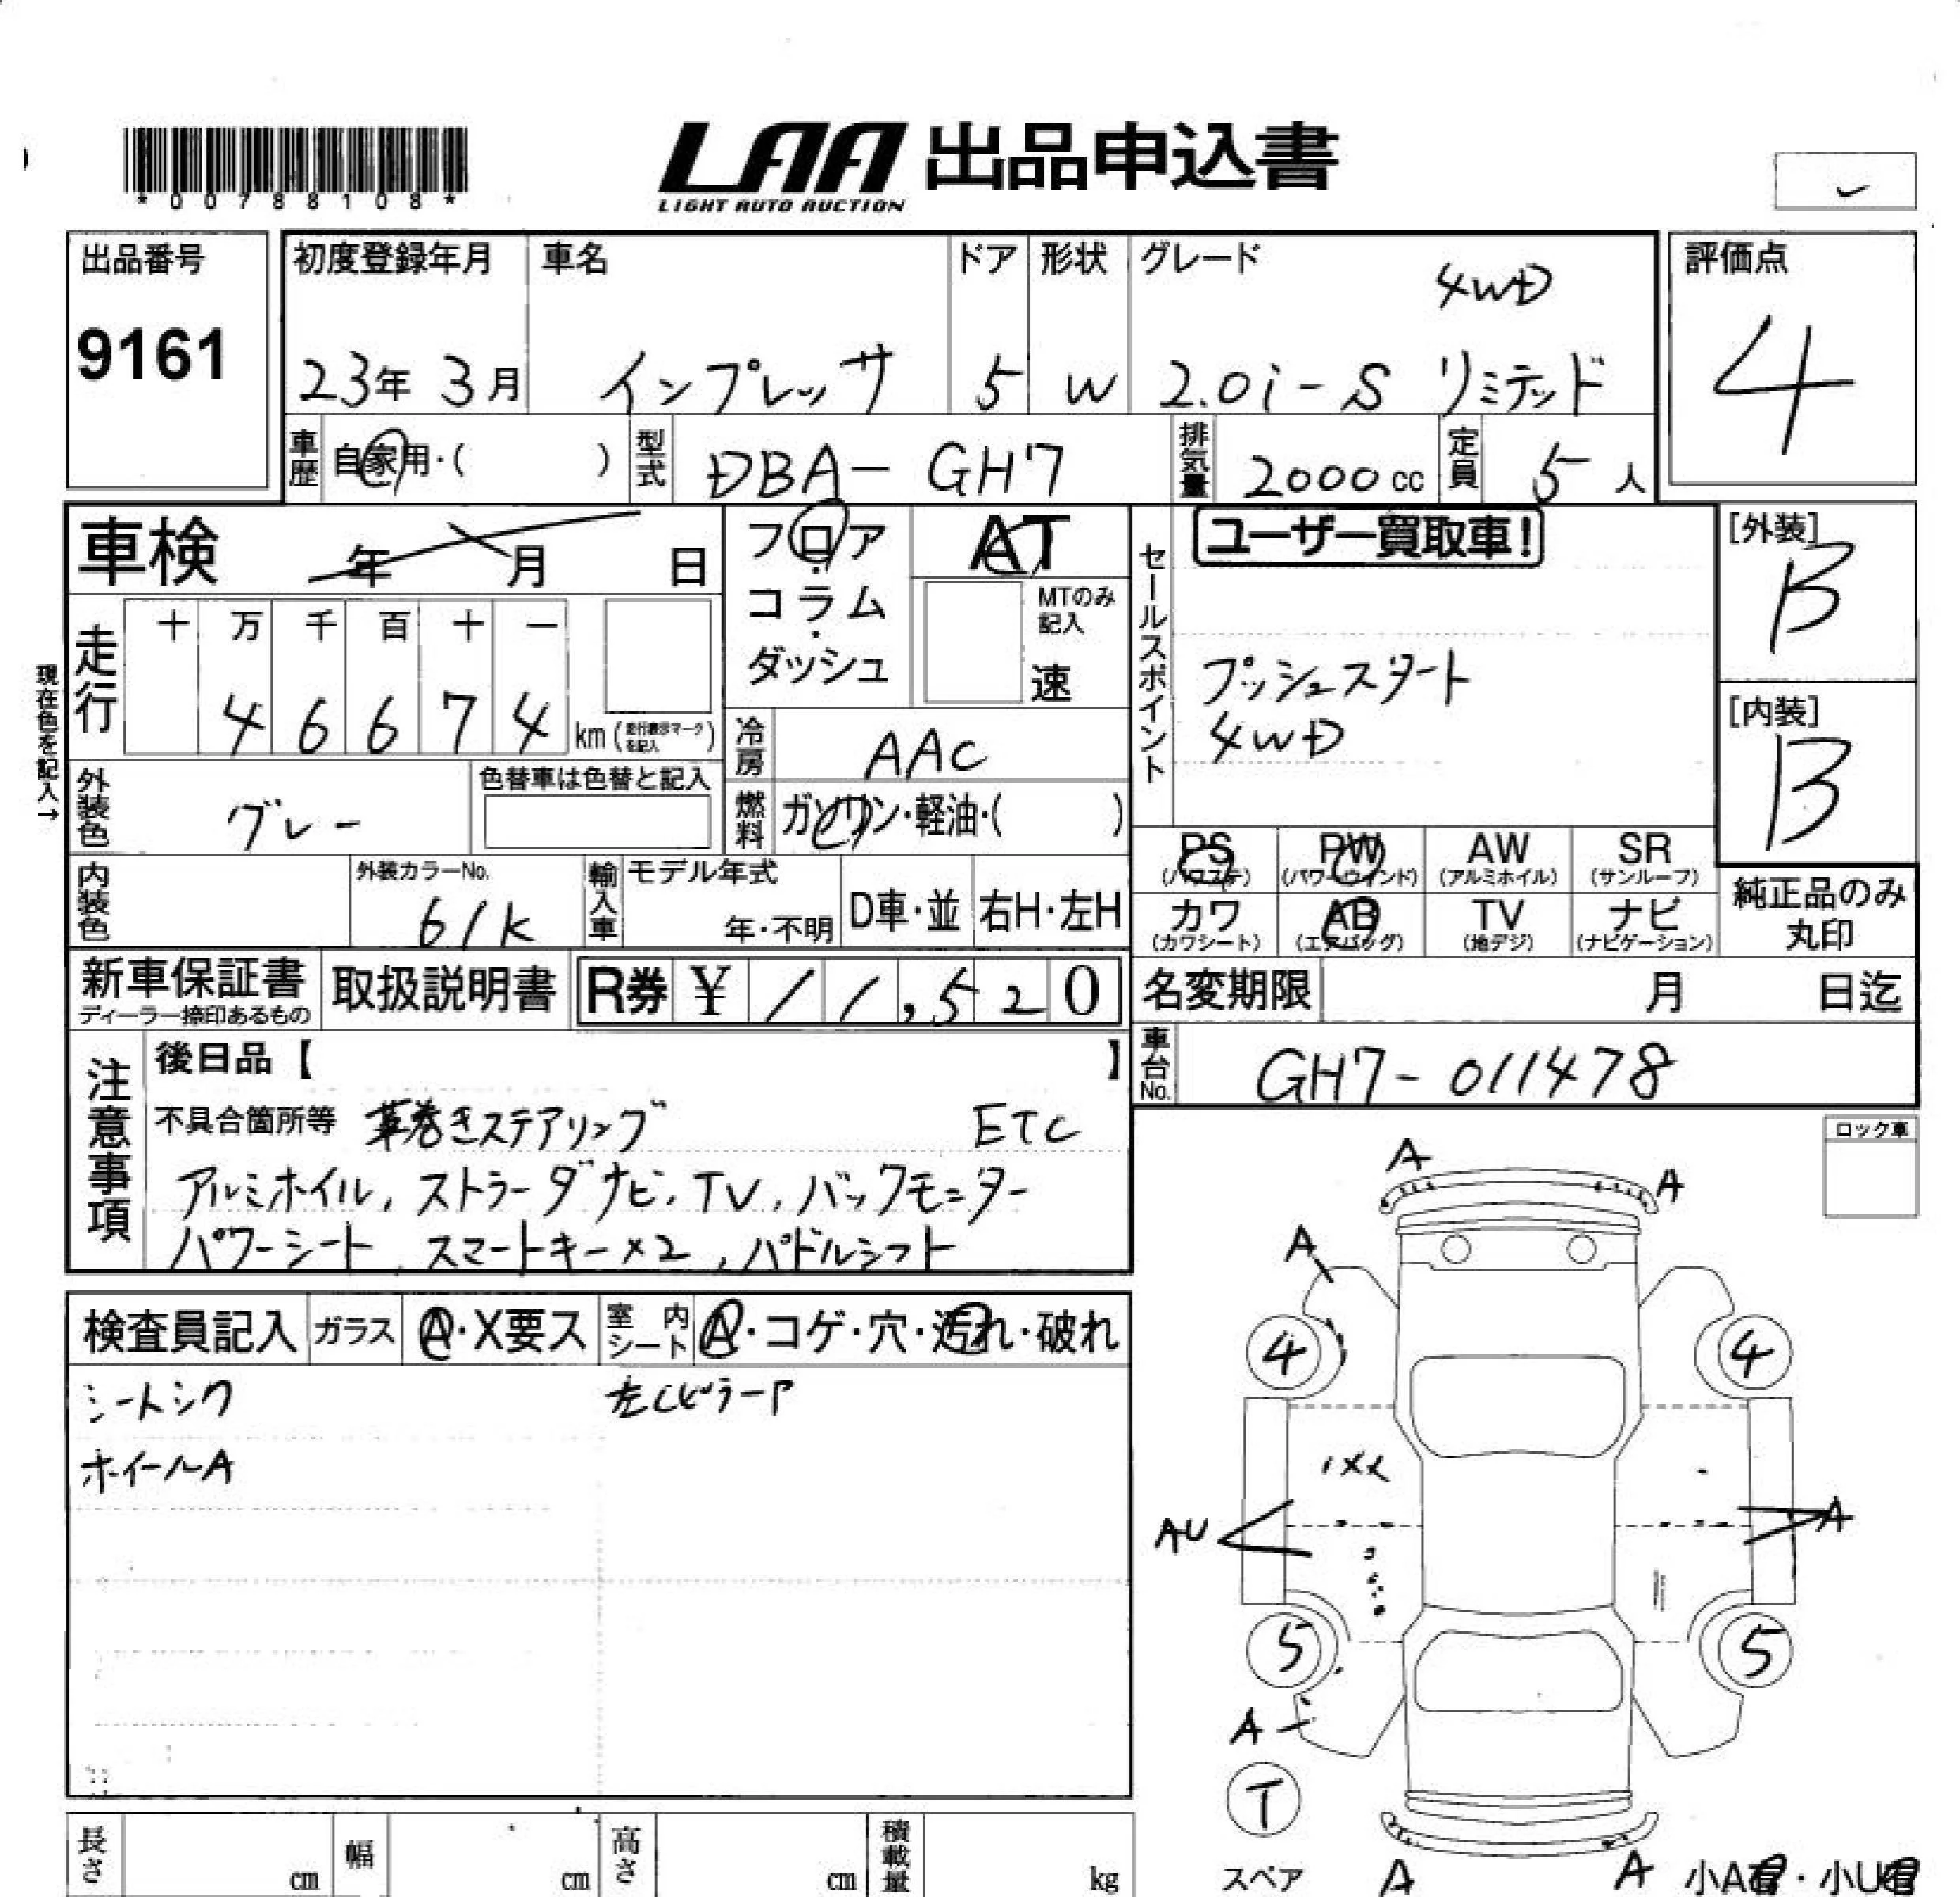 *00788108*
LAA 出品申込書
LIGHT AUTO AUCTION
出品番号
9161
初度登録年月
23年 3月
車名
インプレッサ
ドア
5
形状
W
グレード
4WD
2.0i-S リミテッド
評価点
4
車歴
自家用・( )
型式
DBA-GH7
排気量
2000 cc
定員
5 人
車検
年 月 日
フロア
・
コラム
・
ダッシュ
AT
MTのみ
記入
速
セールスポイント
ユーザー買取車!
プッシュスタート
4WD
[外装]
B
[内装]
B
現在色を記入→
走行
十 万 千 百 十 一
4 6 6 7 4
km (走行表示マークを記入)
冷房
AAC
燃料
ガソリン・軽油・( )
外装色
グレー
色替車は色替と記入
内装色
外装カラーNo.
61K
輸入車
モデル年式
年・不明
D車・並
右H・左H
PS
(パワステ)
PW
(パワーウインド)
AW
(アルミホイル)
SR
(サンルーフ)
カワ
(カワシート)
AB
(エアバッグ)
TV
(地デジ)
ナビ
(ナビゲーション)
純正品のみ
丸印
新車保証書
ディーラー捺印あるもの
取扱説明書
R券 ¥ 11,520
名変期限
月 日迄
車台No.
GH7-011478
注意事項
後日品【 】
不具合箇所等 革巻きステアリング ETC
アルミホイル, ストラーダナビ, TV, バックモニター
パワーシート, スマートキー×2, パドルシフト
ロック車
検査員記入
ガラス
A・X要ス
室内
シート
A・コゲ・穴・汚れ・破れ
シートシワ
ホイールA
A
A
A
4
4
AU
A
5
5
A
T
スペア
A
A
小A有・小U有
長さ
cm
幅
cm
高さ
cm
積載量
kg